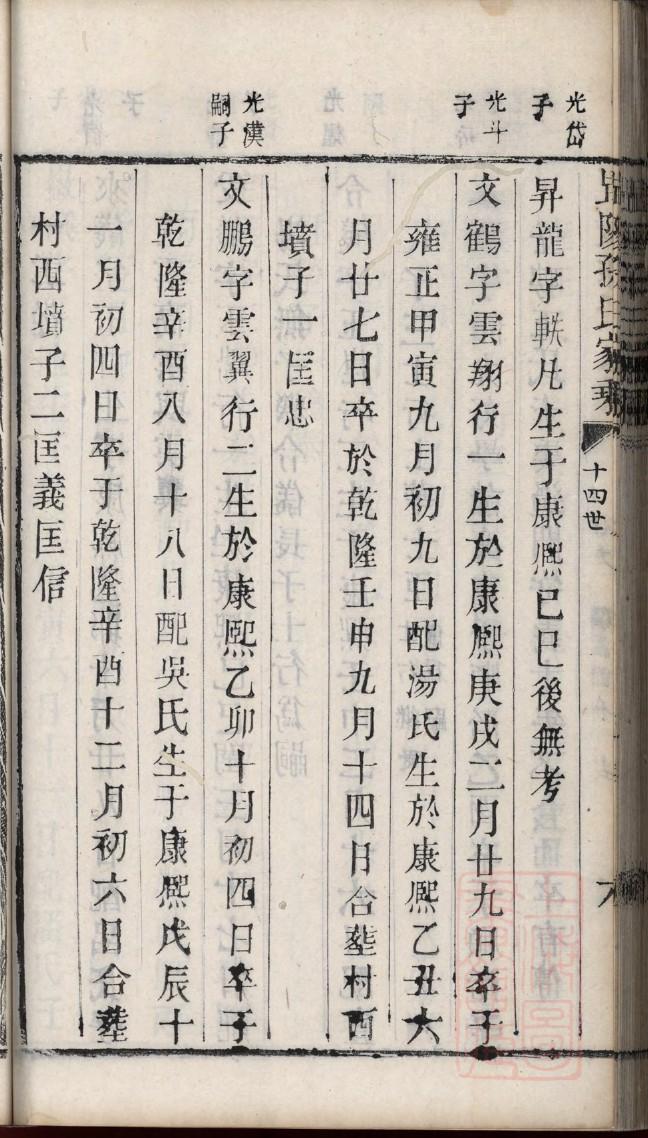 光岱
子
昇龍字軼凡生于康熙己巳後無考
光斗
子
文鶴字雲翔行一生於康熙庚戌二月廿九日卒于
雍正甲寅九月初九日配湯氏生於康熙乙丑六
月廿七日卒於乾隆壬申九月十四日合塟村西
墳子一匡忠
光漢
嗣子
文鵬字雲翼行二生於康熙乙卯十月初四日卒于
乾隆辛酉八月十八日配吳氏生于康熙戊辰十
一月初四日卒于乾隆辛酉十二月初六日合塟
村西墳子二匡義匡信
陽孫氏家乘
十四世